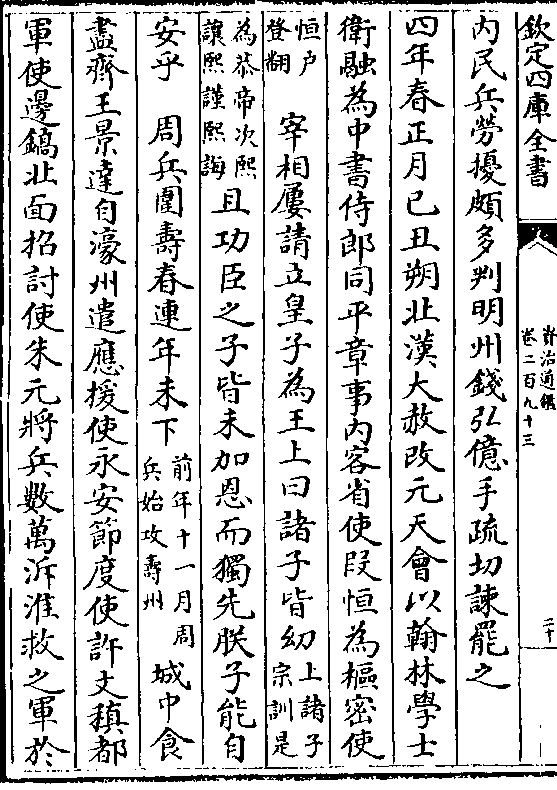 欽定四庫全書
資治通鑑
卷二百九十三
二十
内民兵勞擾頗多判明州錢弘億手疏切諫罷之
四年春正月己丑朔北漢大赦改元天會以翰林學士
衛融為中書侍郎同平章事内客省使段恒為樞密使
恒户
登翻
宰相屢請立皇子為王上曰諸子皆幼
上諸子
宗訓是
為恭帝次熙
讓熙謹熙誨
且功臣之子皆未加恩而獨先朕子能自
安乎　周兵圍壽春連年未下
前年十一月周
兵始攻壽州
城中食
盡齊王景達自濠州遣應援使永安節度使許文稹都
軍使邊鎬北面招討使朱元將兵數萬泝淮救之軍於